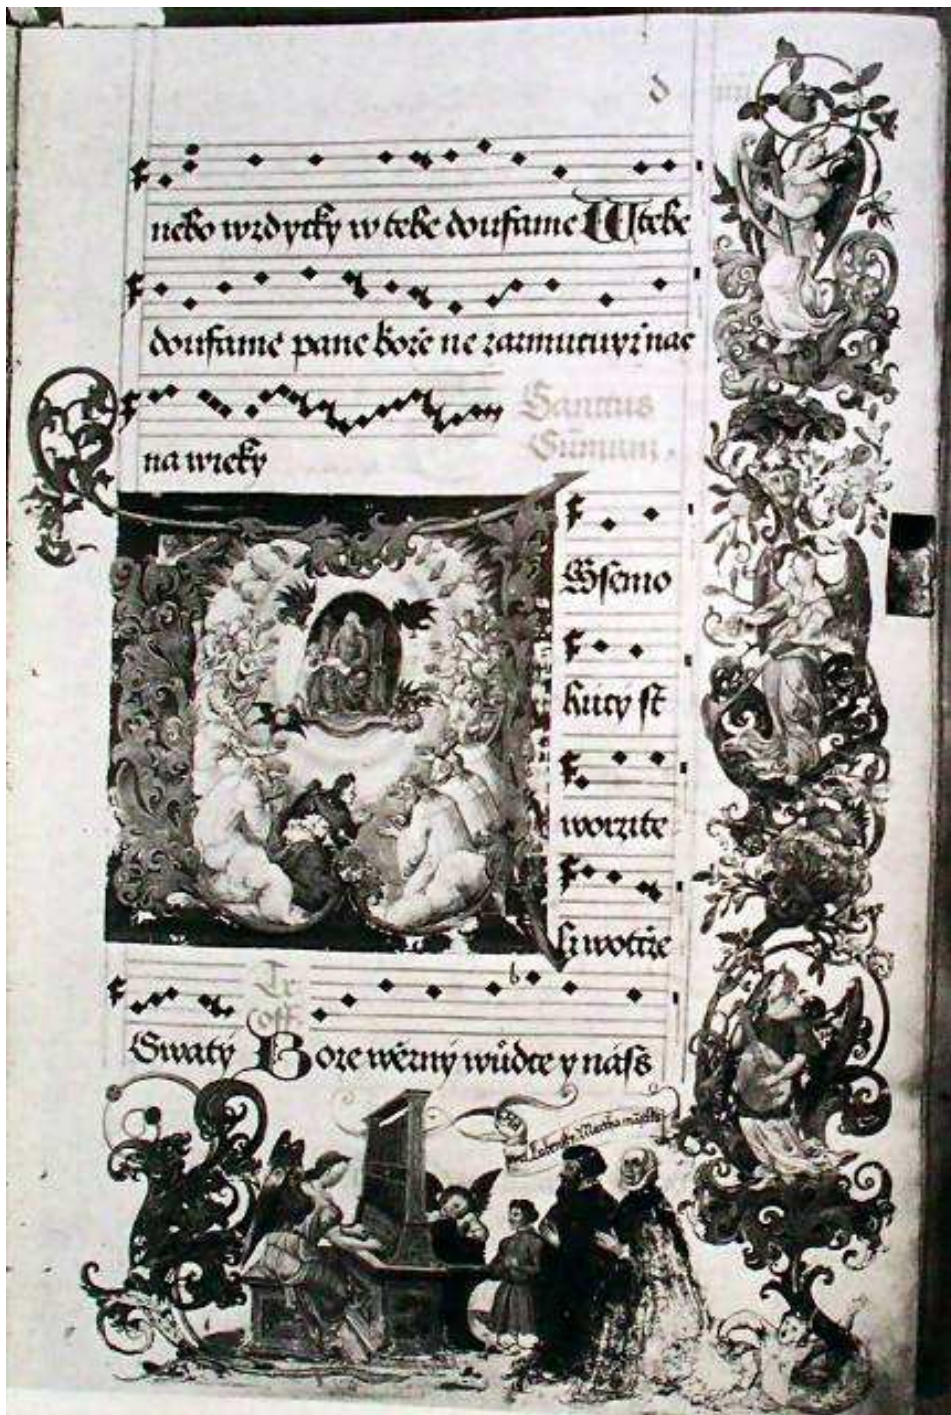 nebo wzdycky w tebe doufame W tebe
doufame pane boze ne zarmucuyz nas
na wieky
Sanctus
Sūmum.
Wssemo
hucy st
worzite
li wotcze
Swaty Boze wěrný wůdce y náss
Martha